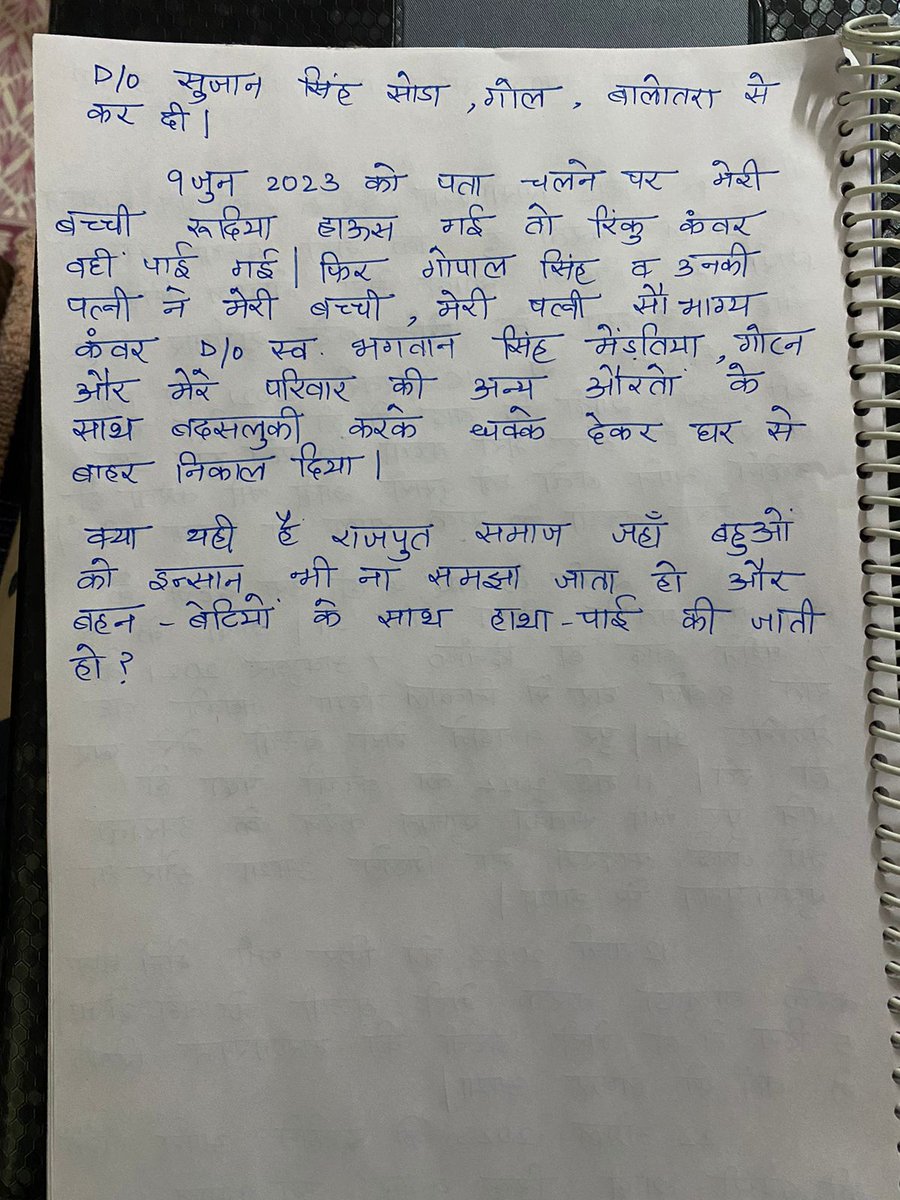 D/O सुजान सिंह सोडा , गोल , बालोतरा से
कर दी |
9 जुन 2023 को पता चलने पर मेरी
बच्ची रूदिया हाऊस गई तो रिंकु कंवर
वहीं पाई गई | फिर गोपाल सिंह व उनकी
पत्नी ने मेरी बच्ची , मेरी पत्नी सौभाग्य
कंवर D/O स्व. भगवान सिंह मेंड़तिया , गोटन
और मेरे परिवार की अन्य औरतों के
साथ बदसलुकी करके धक्के देकर घर से
बाहर निकाल दिया |
क्या यही है राजपुत समाज जहाँ बहुओं
को इन्सान भी ना समझा जाता हो और
बहन - बेटियों के साथ हाथा - पाई की जाती
हो ?